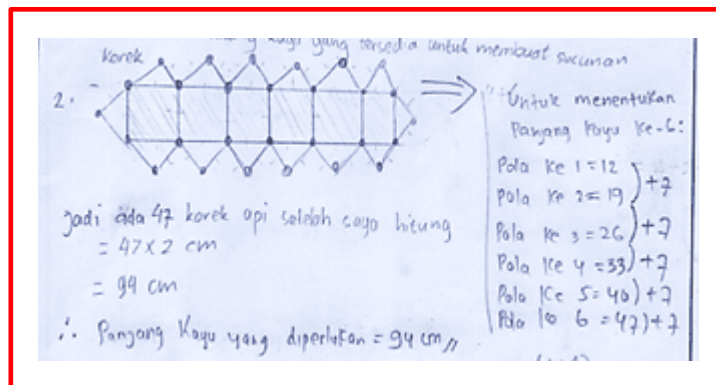 kayu yang tersedia untuk membuat susunan
korek
2.
Jadi ada 47 korek api setelah saya hitung
= 47 x 2 cm
= 94 cm
∴ Panjang Kayu yang diperlukan = 94 cm //
Untuk menentukan
Panjang Kayu Ke-6:
Pola Ke 1 = 12
Pola Ke 2 = 19 ) +7
Pola Ke 3 = 26 ) +7
Pola Ke 4 = 33 ) +7
Pola Ke 5 = 40 ) +7
Pola Ke 6 = 47 ) +7